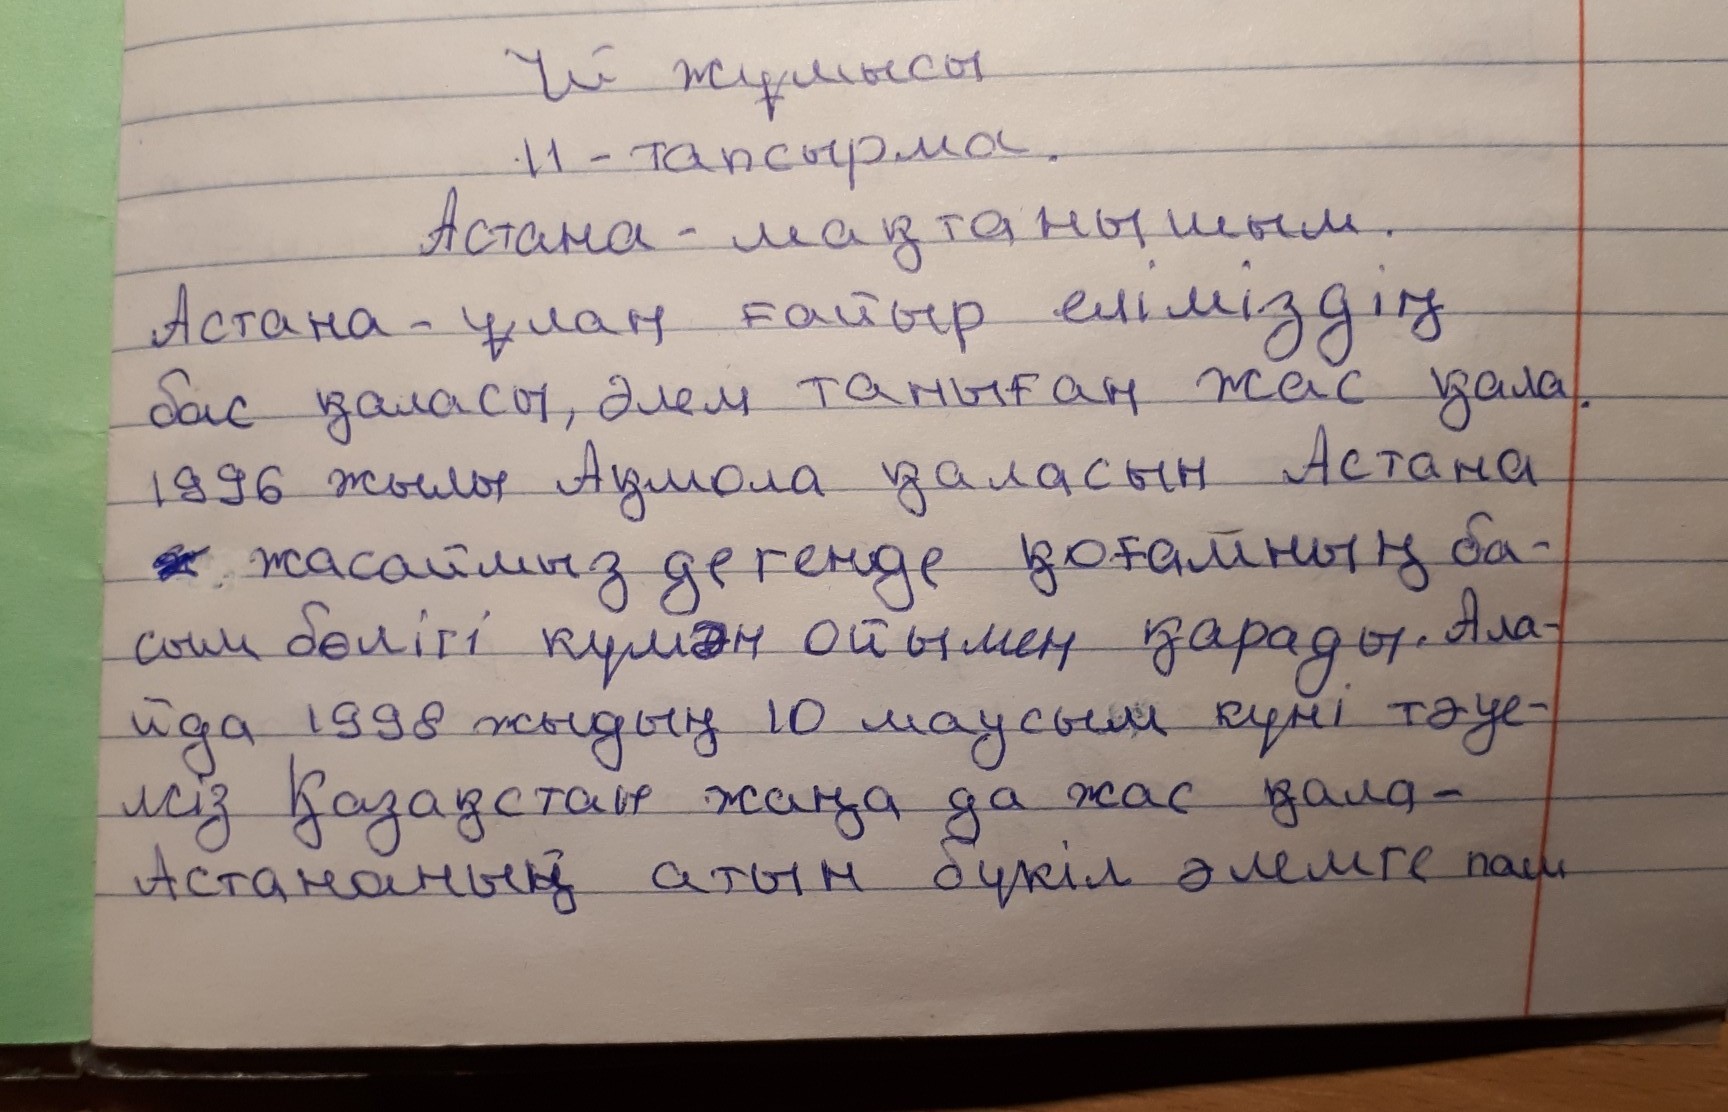 Үй жұмысы
11-тапсырма.
Астана - мақтанышым.
Астана - ұлан ғайыр еліміздің
бас қаласы, әлем таныған жас қала.
1996 жылы Ақмола қаласын Астана
жасаймыз дегенде қоғамның ба-
сым бөлігі күмән ойымен қарады. Ала-
йда 1998 жыдың 10 маусым күні тәуе-
лсіз Қазақстан жаңа да жас қала-
Астананың атын бүкіл әлемге паш